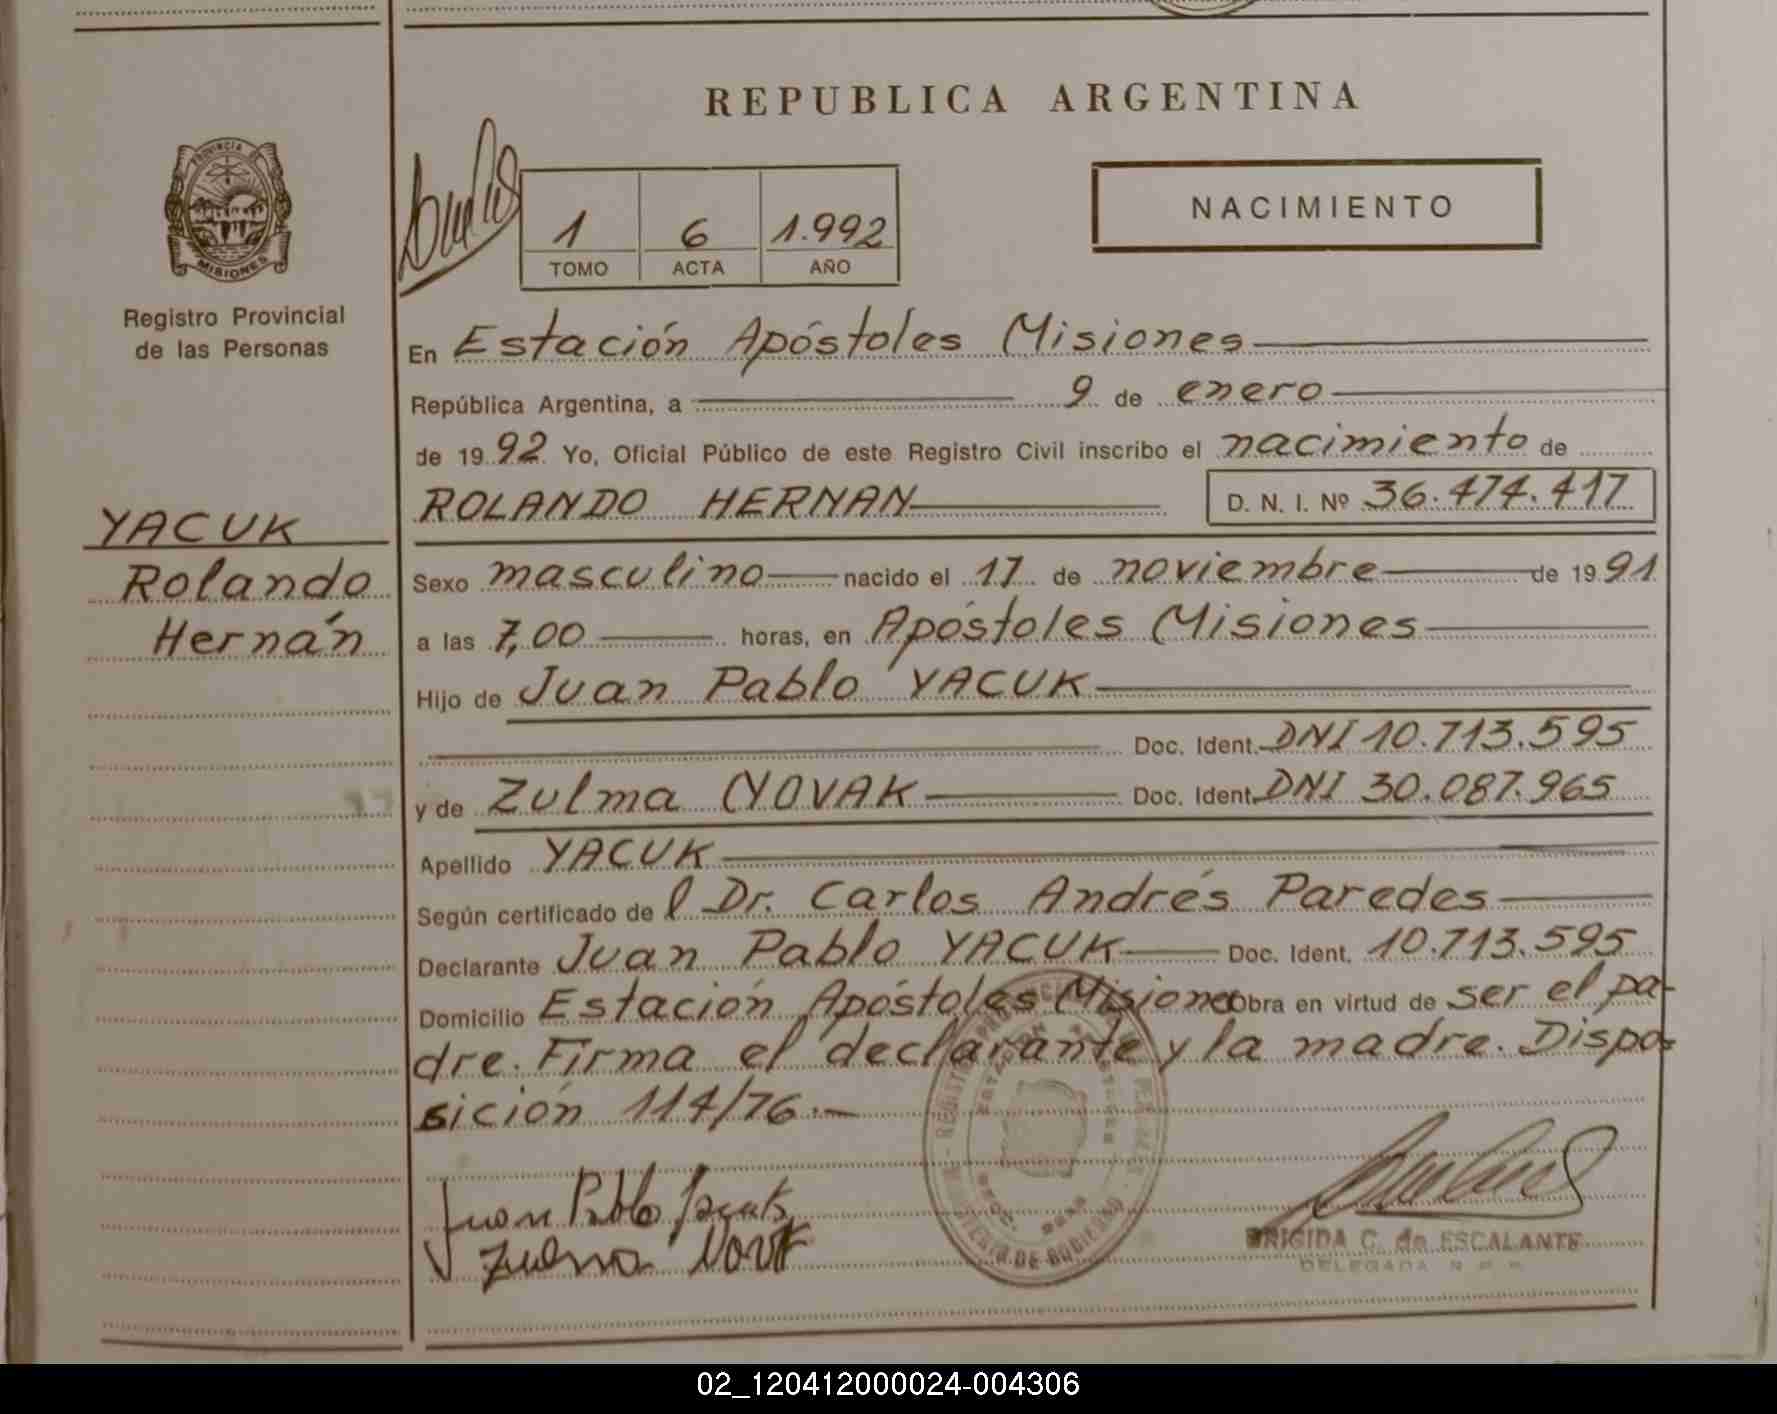 REPUBLICA ARGENTINA
PROVINCIA DE
MISIONES
Registro Provincial
de las Personas
1 6 1.992
TOMO ACTA AÑO
NACIMIENTO
En Estación Apóstoles Misiones
República Argentina, a 9 de enero
de 1992 Yo, Oficial Público de este Registro Civil inscribo el nacimiento de
ROLANDO HERNAN D. N. I. Nº 36.474.417
YACUK
Rolando
Hernán
Sexo masculino nacido el 17 de noviembre de 1991
a las 7,00 horas, en Apóstoles Misiones
Hijo de Juan Pablo YACUK
Doc. Ident. DNI 10.713.595
y de Zulma NOVAK Doc. Ident. DNI 30.087.965
Apellido YACUK
Según certificado de l Dr. Carlos Andrés Paredes
Declarante Juan Pablo YACUK Doc. Ident. 10.713.595
Domicilio Estación Apóstoles Misiones Obra en virtud de ser el pa-
dre. Firma el declarante y la madre. Dispo=
sición 114/76.—
Juan Pablo Yacuk
Zulma Novak
BRIGIDA C. de ESCALANTE
DELEGADA
02_120412000024-004306